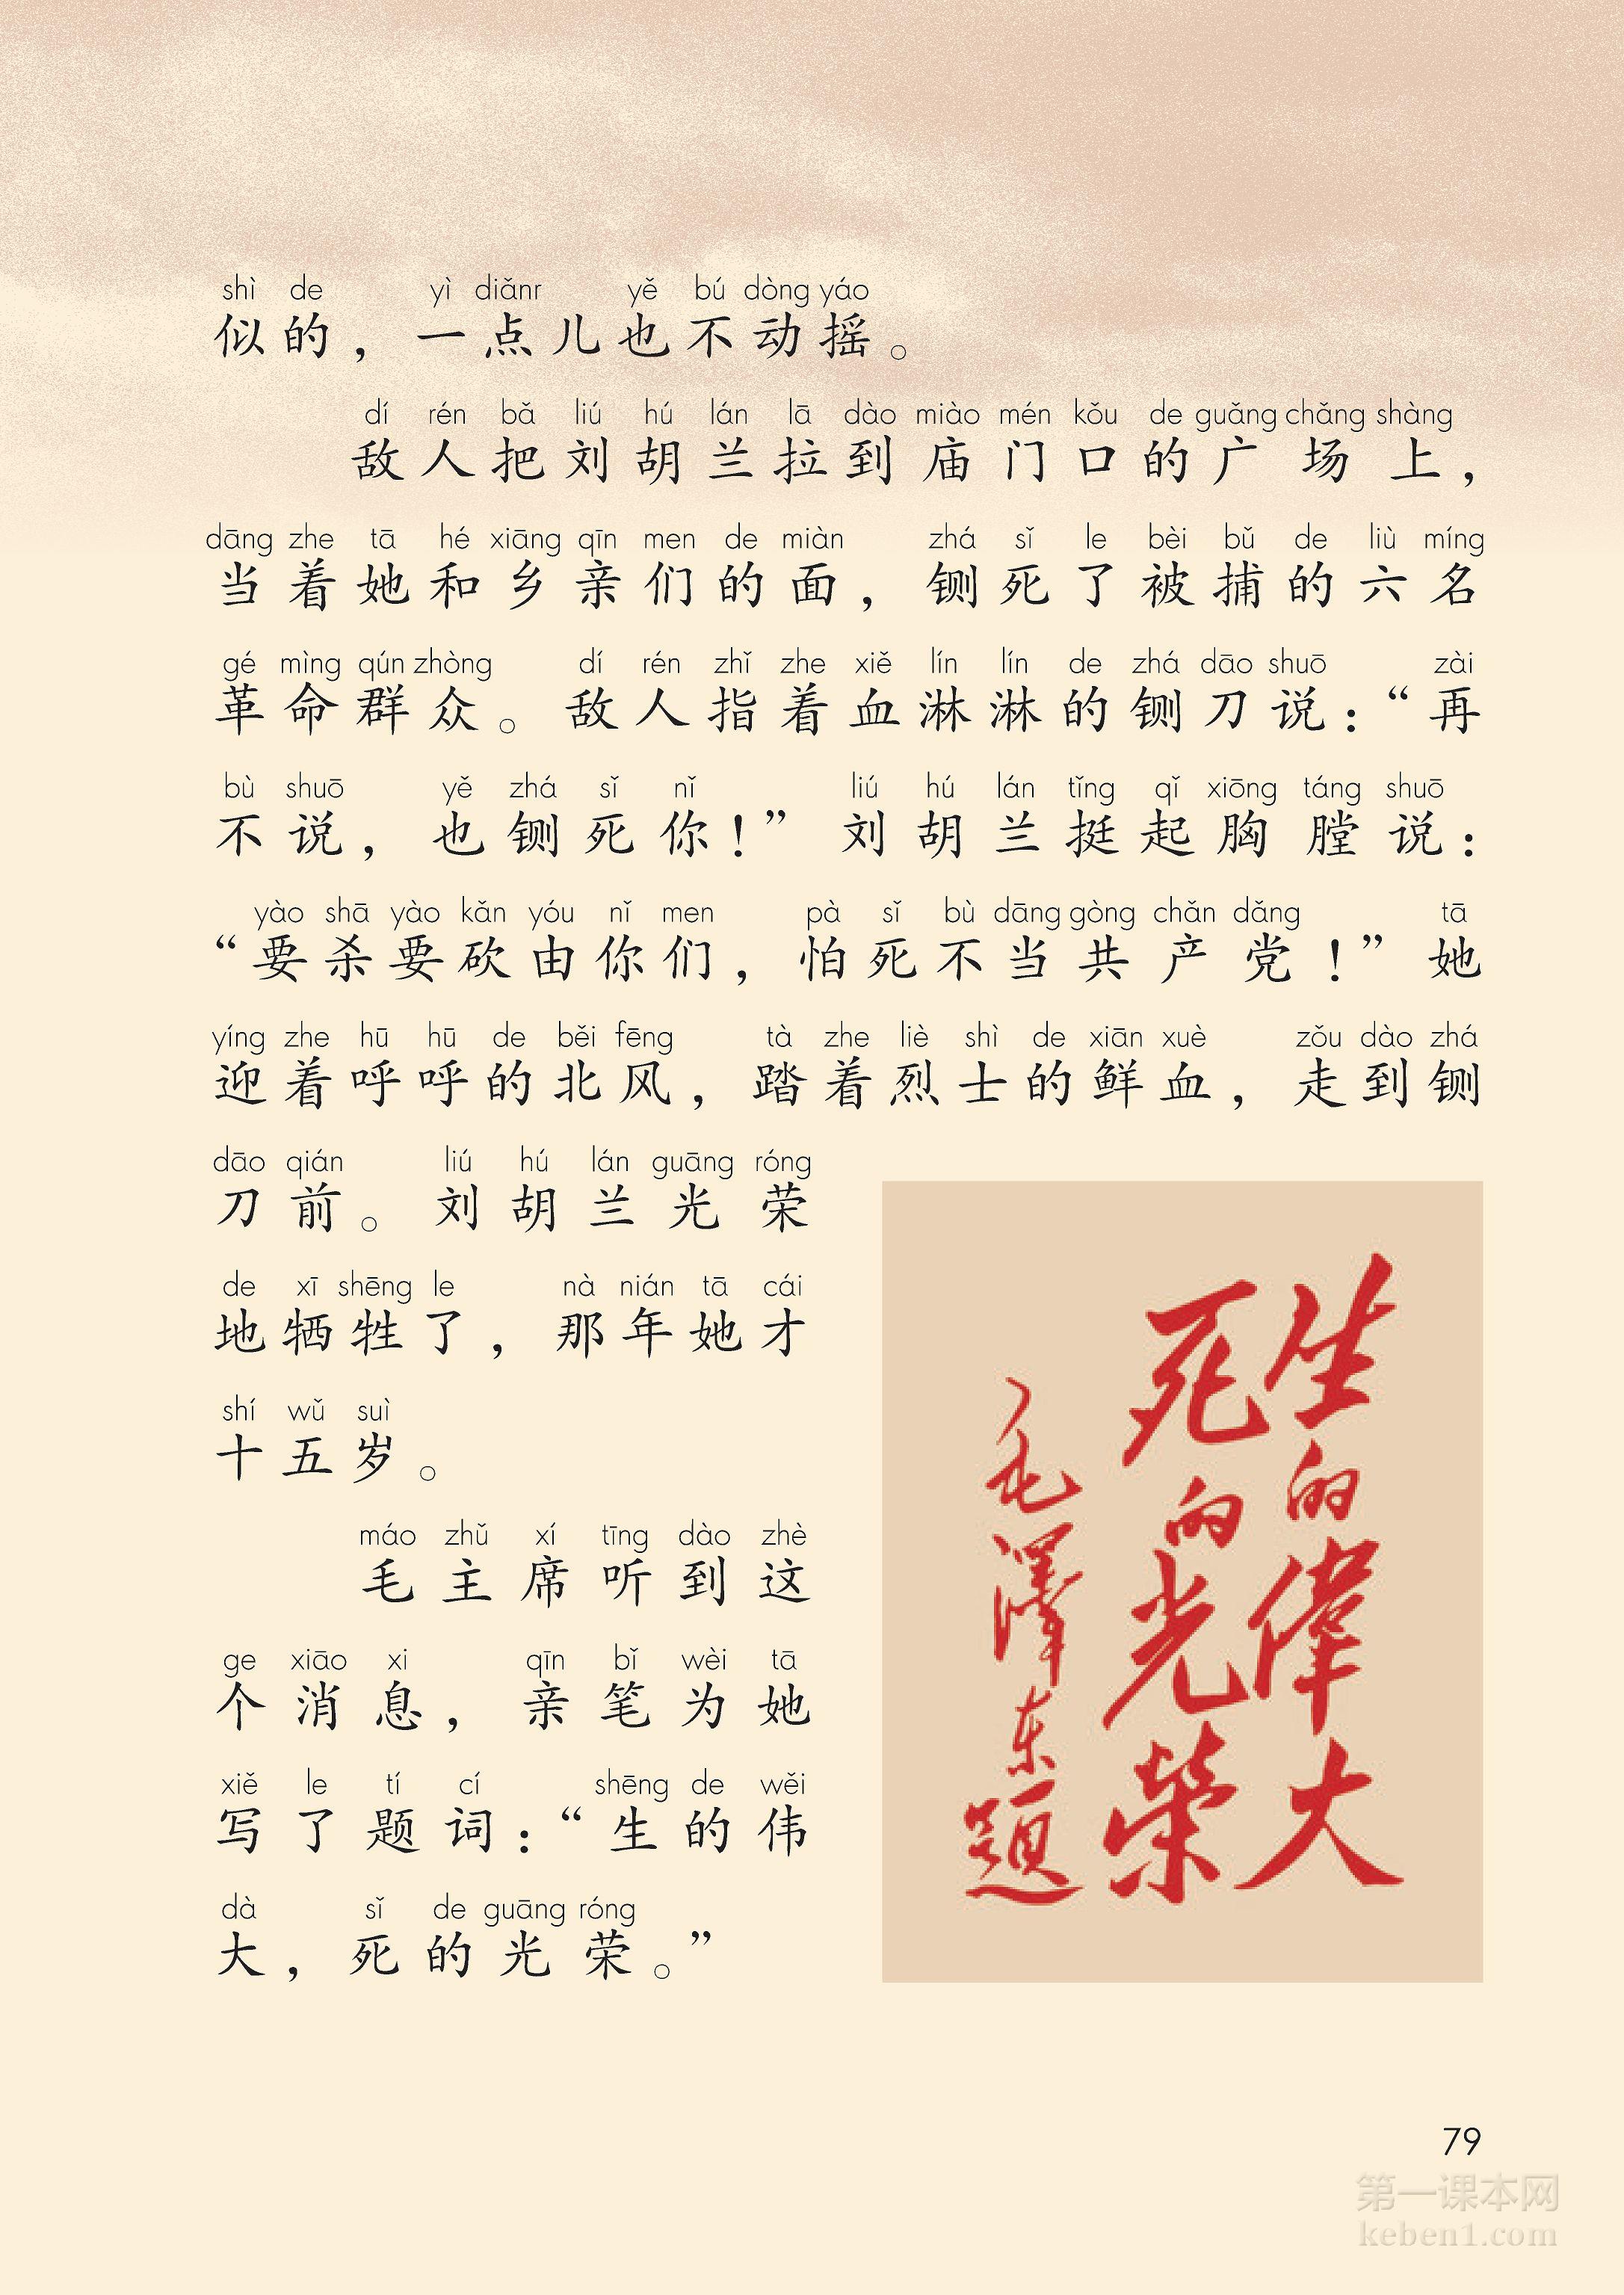 shì de yì diǎnr yě bú dòng yáo
似的，一点儿也不动摇。
dí rén bǎ liú hú lán lā dào miào mén kǒu de guǎng chǎng shàng
敌人把刘胡兰拉到庙门口的广场上，
dāng zhe tā hé xiāng qīn men de miàn zhá sǐ le bèi bǔ de liù míng
当着她和乡亲们的面，铡死了被捕的六名
gé mìng qún zhòng dí rén zhǐ zhe xiě lín lín de zhá dāo shuō zài
革命群众。敌人指着血淋淋的铡刀说：“再
bù shuō yě zhá sǐ nǐ liú hú lán tǐng qǐ xiōng táng shuō
不说，也铡死你！”刘胡兰挺起胸膛说：
yào shā yào kǎn yóu nǐ men pà sǐ bù dāng gòng chǎn dǎng tā
“要杀要砍由你们，怕死不当共产党！”她
yíng zhe hū hū de běi fēng tà zhe liè shì de xiān xuè zǒu dào zhá
迎着呼呼的北风，踏着烈士的鲜血，走到铡
dāo qián liú hú lán guāng róng
刀前。刘胡兰光荣
de xī shēng le nà nián tā cái
地牺牲了，那年她才
shí wǔ suì
十五岁。
máo zhǔ xí tīng dào zhè
毛主席听到这
ge xiāo xi qīn bǐ wèi tā
个消息，亲笔为她
xiě le tí cí shēng de wěi
写了题词：“生的伟
dà sǐ de guāng róng
大，死的光荣。”
生的偉大
死的光榮
毛澤东題
79
第一课本网
keben1.com